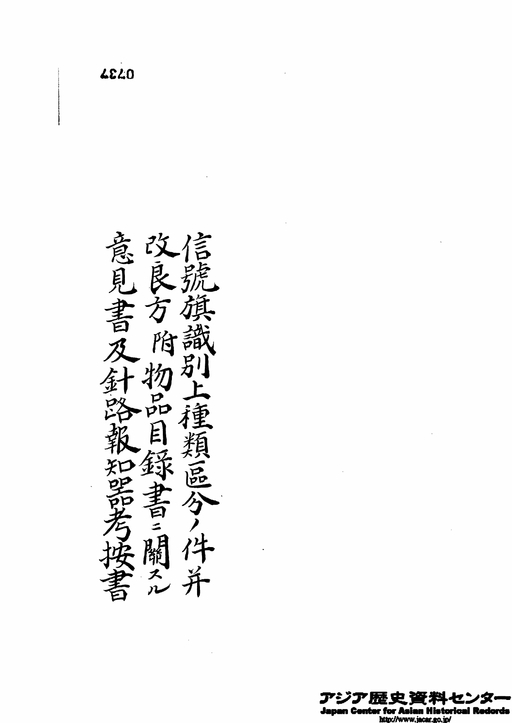 0737
信號旗識別上種類區分ノ件并
改良方附物品目錄書ニ關スル
意見書及針路報知器考按書
アジア歴史資料センター
Japan Center for Asian Historical Records
http://www.jacar.go.jp/